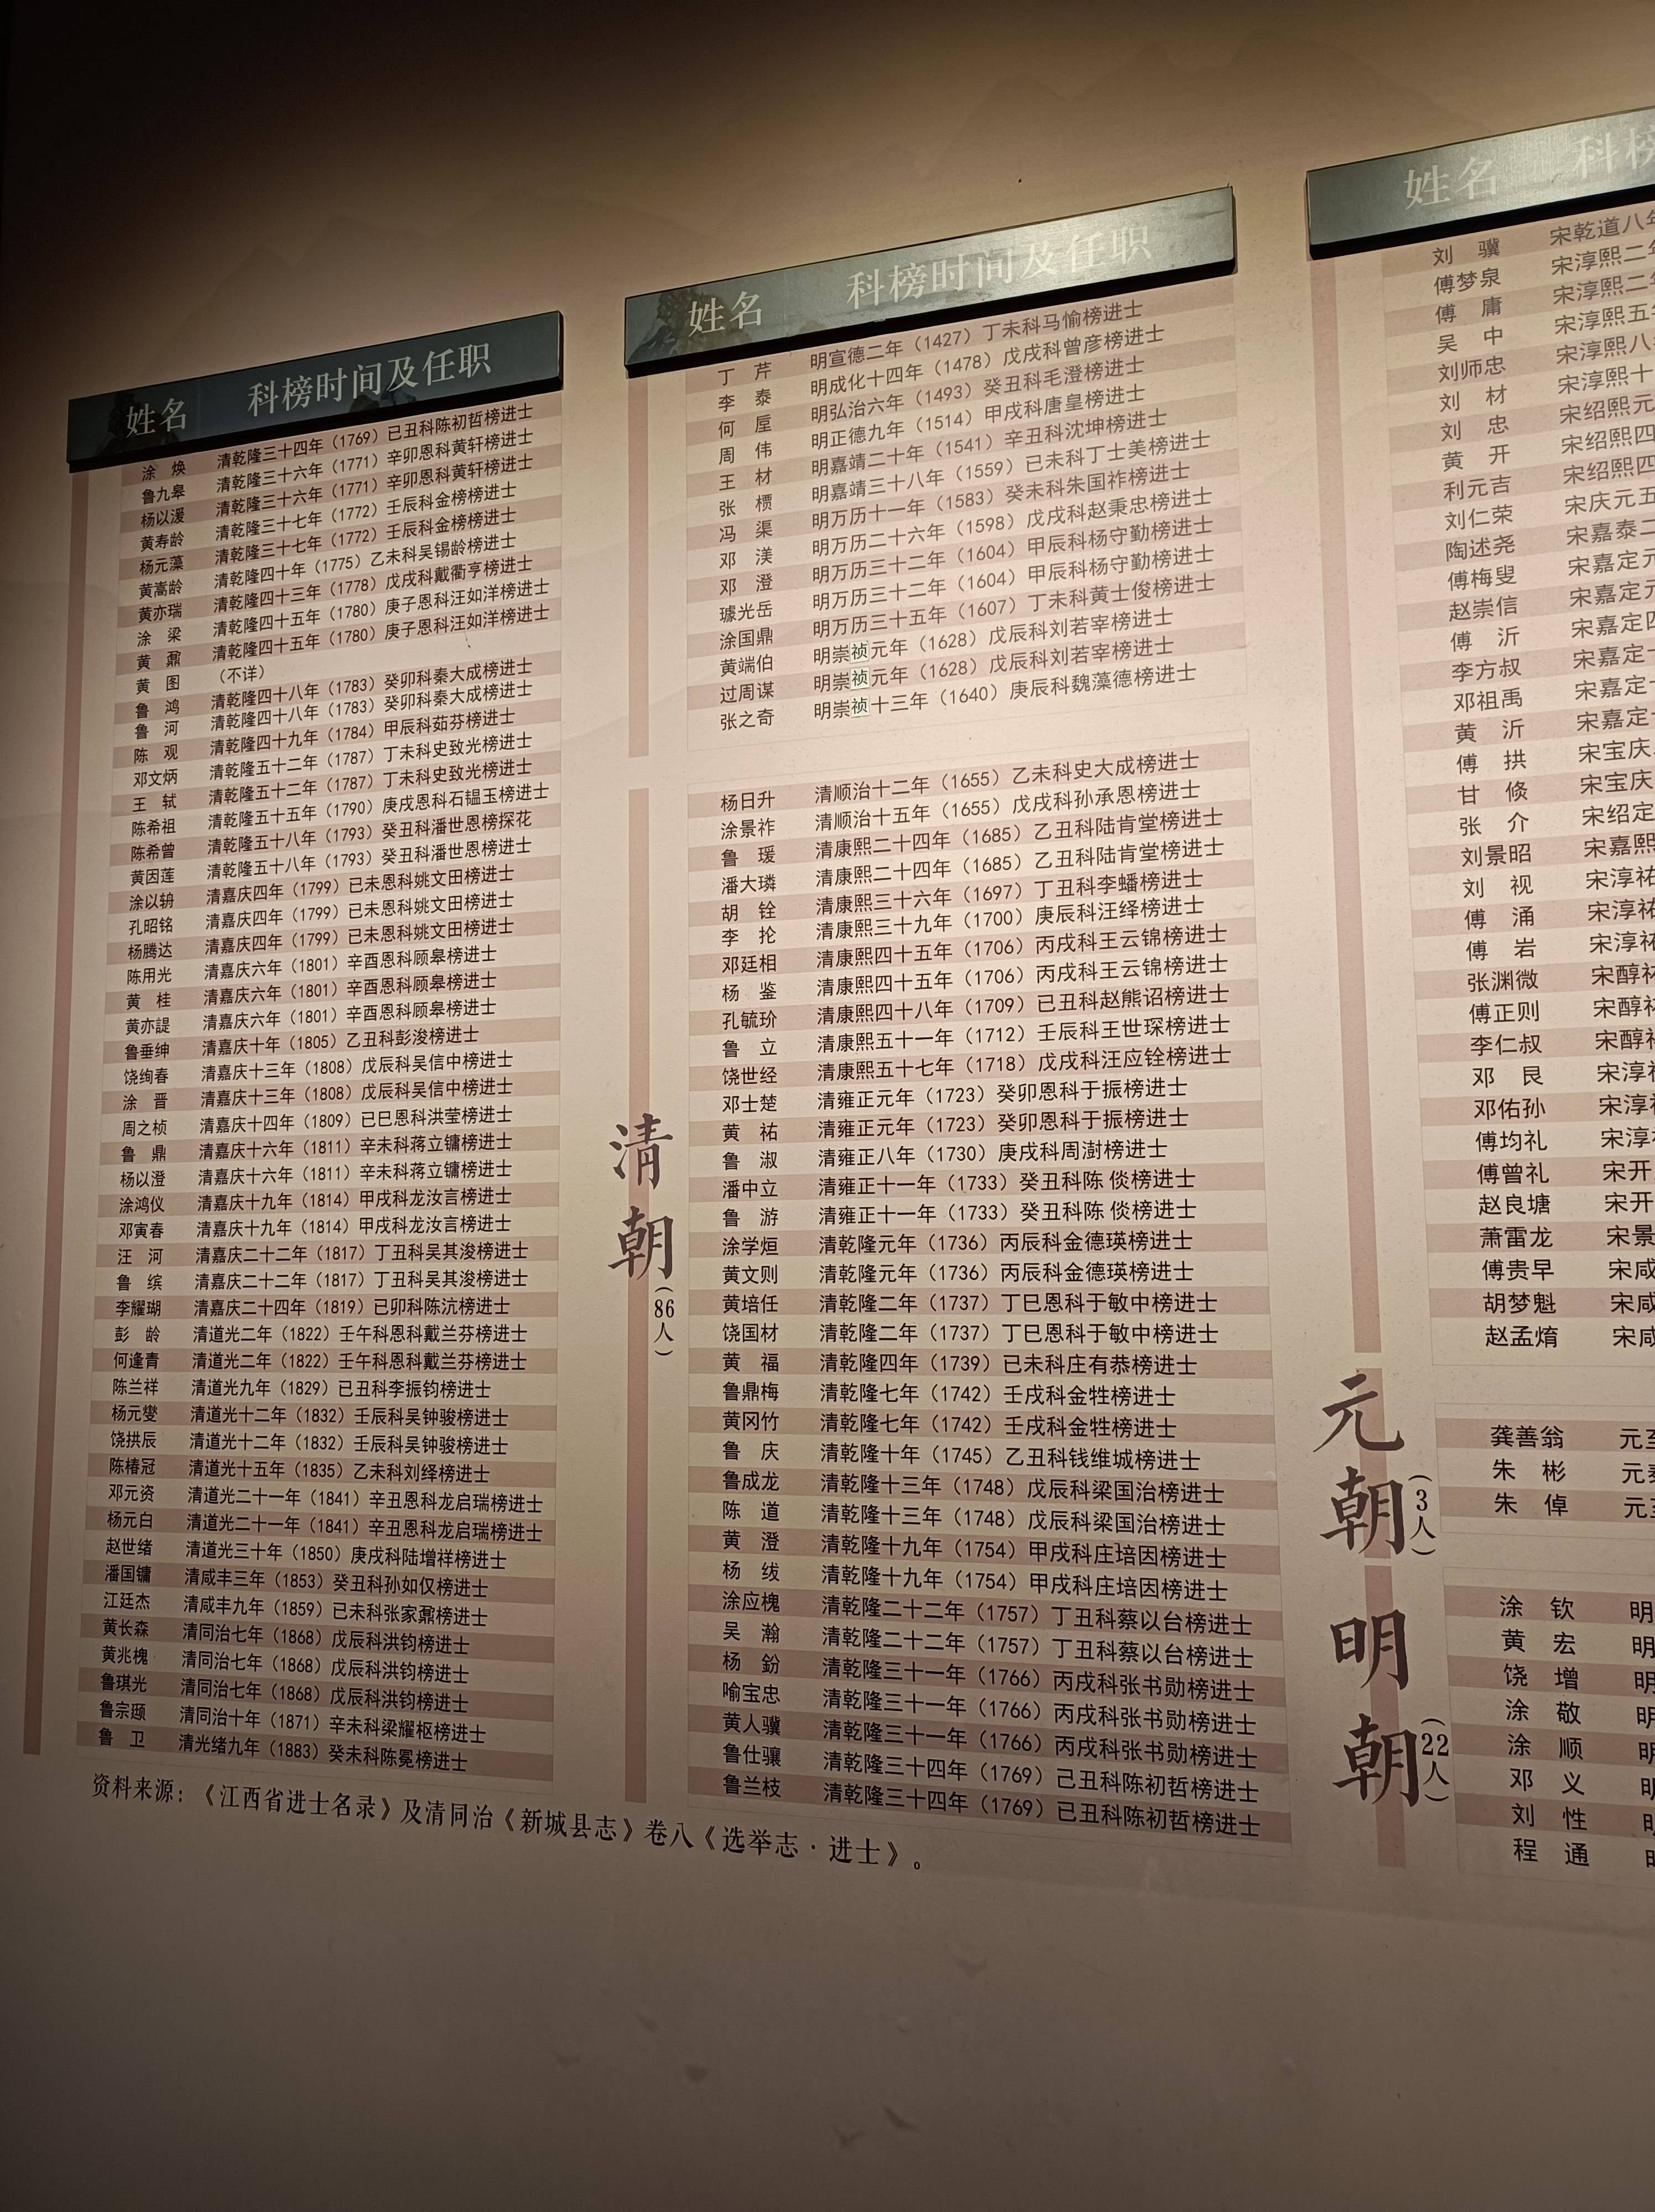 姓名 科榜时间及任职
涂 焕 清乾隆三十四年（1769）已丑科陈初哲榜进士
鲁九皋 清乾隆三十六年（1771）辛卯恩科黄轩榜进士
杨以湲 清乾隆三十六年（1771）辛卯恩科黄轩榜进士
黄寿龄 清乾隆三十七年（1772）壬辰科金榜榜进士
杨元藻 清乾隆三十七年（1772）壬辰科金榜榜进士
黄嵩龄 清乾隆四十年（1775）乙未科吴锡龄榜进士
黄亦瑞 清乾隆四十三年（1778）戊戌科戴衢亨榜进士
涂 梁 清乾隆四十五年（1780）庚子恩科汪如洋榜进士
黄 鼐 清乾隆四十五年（1780）庚子恩科汪如洋榜进士
黄 图 （不详）
鲁 鸿 清乾隆四十八年（1783）癸卯科秦大成榜进士
鲁 河 清乾隆四十八年（1783）癸卯科秦大成榜进士
陈 观 清乾隆四十九年（1784）甲辰科茹芬榜进士
邓文炳 清乾隆五十二年（1787）丁未科史致光榜进士
王 轼 清乾隆五十二年（1787）丁未科史致光榜进士
陈希祖 清乾隆五十五年（1790）庚戌恩科石韫玉榜进士
陈希曾 清乾隆五十八年（1793）癸丑科潘世恩榜探花
黄因莲 清乾隆五十八年（1793）癸丑科潘世恩榜进士
涂以辀 清嘉庆四年（1799）已未恩科姚文田榜进士
孔昭铭 清嘉庆四年（1799）已未恩科姚文田榜进士
杨腾达 清嘉庆四年（1799）已未恩科姚文田榜进士
陈用光 清嘉庆六年（1801）辛酉恩科顾皋榜进士
黄 桂 清嘉庆六年（1801）辛酉恩科顾皋榜进士
黄亦諟 清嘉庆六年（1801）辛酉恩科顾皋榜进士
鲁垂绅 清嘉庆十年（1805）乙丑科彭浚榜进士
饶绚春 清嘉庆十三年（1808）戊辰科吴信中榜进士
涂 晋 清嘉庆十三年（1808）戊辰科吴信中榜进士
周之桢 清嘉庆十四年（1809）已巳恩科洪莹榜进士
鲁 鼎 清嘉庆十六年（1811）辛未科蒋立镛榜进士
杨以澄 清嘉庆十六年（1811）辛未科蒋立镛榜进士
涂鸿仪 清嘉庆十九年（1814）甲戌科龙汝言榜进士
邓寅春 清嘉庆十九年（1814）甲戌科龙汝言榜进士
汪 河 清嘉庆二十二年（1817）丁丑科吴其浚榜进士
鲁 缤 清嘉庆二十二年（1817）丁丑科吴其浚榜进士
李耀瑚 清嘉庆二十四年（1819）已卯科陈沆榜进士
彭 龄 清道光二年（1822）壬午科恩科戴兰芬榜进士
何逢青 清道光二年（1822）壬午科恩科戴兰芬榜进士
陈兰祥 清道光九年（1829）已丑科李振钧榜进士
杨元燮 清道光十二年（1832）壬辰科吴钟骏榜进士
饶拱辰 清道光十二年（1832）壬辰科吴钟骏榜进士
陈椿冠 清道光十五年（1835）乙未科刘绎榜进士
邓元资 清道光二十一年（1841）辛丑恩科龙启瑞榜进士
杨元白 清道光二十一年（1841）辛丑恩科龙启瑞榜进士
赵世绪 清道光三十年（1850）庚戌科陆增祥榜进士
潘国镛 清咸丰三年（1853）癸丑科孙如仅榜进士
江廷杰 清咸丰九年（1859）已未科张家鼐榜进士
黄长森 清同治七年（1868）戊辰科洪钧榜进士
黄兆槐 清同治七年（1868）戊辰科洪钧榜进士
鲁琪光 清同治七年（1868）戊辰科洪钧榜进士
鲁宗颋 清同治十年（1871）辛未科梁耀枢榜进士
鲁 卫 清光绪九年（1883）癸未科陈冕榜进士
资料来源：《江西省进士名录》及清同治《新城县志》卷八《选举志·进士》。
姓名 科榜时间及任职
丁 芹 明宣德二年（1427）丁未科马愉榜进士
李 泰 明成化十四年（1478）戊戌科曾彦榜进士
何 垕 明弘治六年（1493）癸丑科毛澄榜进士
周 伟 明正德九年（1514）甲戌科唐皇榜进士
王 材 明嘉靖二十年（1541）辛丑科沈坤榜进士
张 槚 明嘉靖三十八年（1559）已未科丁士美榜进士
冯 渠 明万历十一年（1583）癸未科朱国祚榜进士
邓 渼 明万历二十六年（1598）戊戌科赵秉忠榜进士
邓 澄 明万历三十二年（1604）甲辰科杨守勤榜进士
璩光岳 明万历三十二年（1604）甲辰科杨守勤榜进士
涂国鼎 明万历三十五年（1607）丁未科黄士俊榜进士
黄端伯 明崇祯元年（1628）戊辰科刘若宰榜进士
过周谋 明崇祯元年（1628）戊辰科刘若宰榜进士
张之奇 明崇祯十三年（1640）庚辰科魏藻德榜进士
清朝（86人）
杨日升 清顺治十二年（1655）乙未科史大成榜进士
涂景祚 清顺治十五年（1655）戊戌科孙承恩榜进士
鲁 瑗 清康熙二十四年（1685）乙丑科陆肯堂榜进士
潘大璘 清康熙二十四年（1685）乙丑科陆肯堂榜进士
胡 铨 清康熙三十六年（1697）丁丑科李蟠榜进士
李 抡 清康熙三十九年（1700）庚辰科汪绎榜进士
邓廷相 清康熙四十五年（1706）丙戌科王云锦榜进士
杨 鉴 清康熙四十五年（1706）丙戌科王云锦榜进士
孔毓玠 清康熙四十八年（1709）已丑科赵熊诏榜进士
鲁 立 清康熙五十一年（1712）壬辰科王世琛榜进士
饶世经 清康熙五十七年（1718）戊戌科汪应铨榜进士
邓士楚 清雍正元年（1723）癸卯恩科于振榜进士
黄 祐 清雍正元年（1723）癸卯恩科于振榜进士
鲁 淑 清雍正八年（1730）庚戌科周澍榜进士
潘中立 清雍正十一年（1733）癸丑科陈 倓榜进士
鲁 游 清雍正十一年（1733）癸丑科陈 倓榜进士
涂学烜 清乾隆元年（1736）丙辰科金德瑛榜进士
黄文则 清乾隆元年（1736）丙辰科金德瑛榜进士
黄培任 清乾隆二年（1737）丁巳恩科于敏中榜进士
饶国材 清乾隆二年（1737）丁巳恩科于敏中榜进士
黄 福 清乾隆四年（1739）已未科庄有恭榜进士
鲁鼎梅 清乾隆七年（1742）壬戌科金甡榜进士
黄冈竹 清乾隆七年（1742）壬戌科金甡榜进士
鲁 庆 清乾隆十年（1745）乙丑科钱维城榜进士
鲁成龙 清乾隆十三年（1748）戊辰科梁国治榜进士
陈 道 清乾隆十三年（1748）戊辰科梁国治榜进士
黄 澄 清乾隆十九年（1754）甲戌科庄培因榜进士
杨 绂 清乾隆十九年（1754）甲戌科庄培因榜进士
涂应槐 清乾隆二十二年（1757）丁丑科蔡以台榜进士
吴 瀚 清乾隆二十二年（1757）丁丑科蔡以台榜进士
杨 鈖 清乾隆三十一年（1766）丙戌科张书勋榜进士
喻宝忠 清乾隆三十一年（1766）丙戌科张书勋榜进士
黄人骥 清乾隆三十一年（1766）丙戌科张书勋榜进士
鲁仕骧 清乾隆三十四年（1769）己丑科陈初哲榜进士
鲁兰枝 清乾隆三十四年（1769）已丑科陈初哲榜进士
姓名 科榜
刘 骥 宋乾道八年
傅梦泉 宋淳熙二年
傅 庸 宋淳熙二年
吴 中 宋淳熙五年
刘师忠 宋淳熙八
刘 材 宋淳熙十
刘 忠 宋绍熙元
黄 开 宋绍熙四
利元吉 宋绍熙四
刘仁荣 宋庆元五
陶述尧 宋嘉泰二
傅梅叟 宋嘉定元
赵崇信 宋嘉定元
傅 沂 宋嘉定四
李方叔 宋嘉定十
邓祖禹 宋嘉定十
黄 沂 宋嘉定十
傅 拱 宋宝庆
甘 倏 宋宝庆
张 介 宋绍定
刘景昭 宋嘉熙
刘 视 宋淳祐
傅 涌 宋淳祐
傅 岩 宋淳祐
张渊微 宋醇祐
傅正则 宋醇祐
李仁叔 宋醇祐
邓 艮 宋淳祐
邓佑孙 宋淳祐
傅均礼 宋淳
傅曾礼 宋开
赵良塘 宋开
萧雷龙 宋景
傅贵早 宋咸
胡梦魁 宋咸
赵孟焴 宋咸
元朝（3人）
龚善翁 元至
朱 彬 元泰
朱 倬 元至
明朝（22人）
涂 钦 明
黄 宏 明
饶 增 明
涂 敬 明
涂 顺 明
邓 义 明
刘 性 明
程 通 明